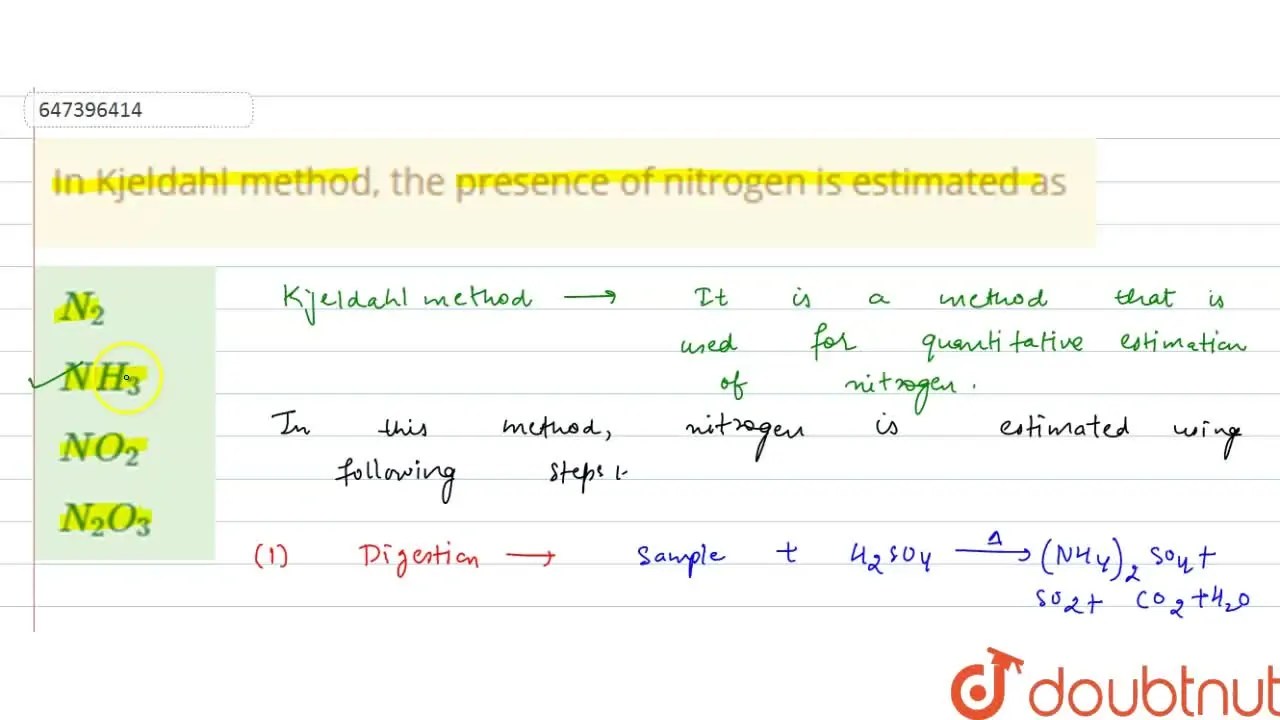 647396414
In Kjeldahl method, the presence of nitrogen is estimated as
N₂
NH₃
NO₂
N₂O₃
Kjeldahl method → It is a method that is
used for quantitative estimation
of nitrogen.
In this method, nitrogen is estimated using
following steps:
(1) Digestion → Sample + H₂SO₄ —Δ→ (NH₄)₂SO₄ +
SO₂ + CO₂ + H₂O
doubtnut